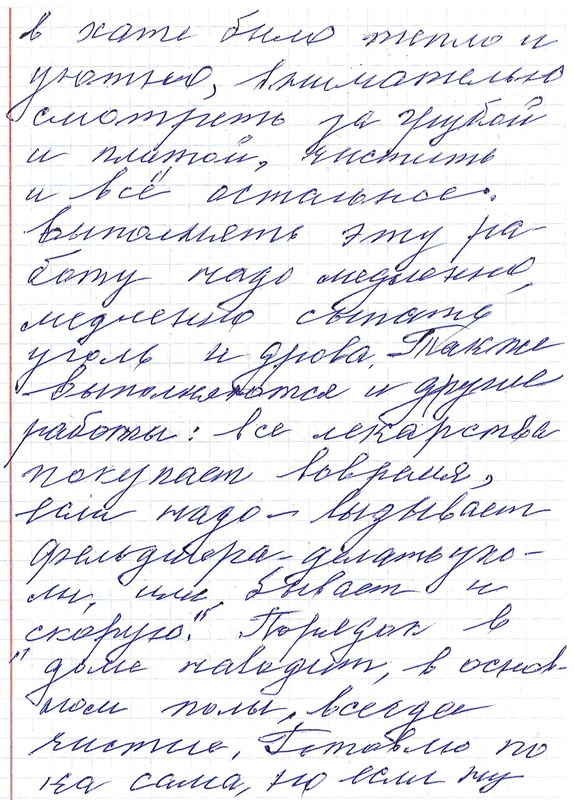 в хате было тепло и
уютно, внимательно
смотреть за грубой
и плитой, чистить
и всё остальное.
Выполнять эту ра-
боту надо медленно,
медленно сыпать
уголь и дрова. Также
выполняются и другие
работы: все лекарства
покупает вовремя,
если надо – вызывает
фельдшера – делать уко-
лы, или, бывает и
скорую". Порядок в
" доме наводит, в основ-
ном полы, всегда
чистые. Готовлю по
ка сама, но если ну